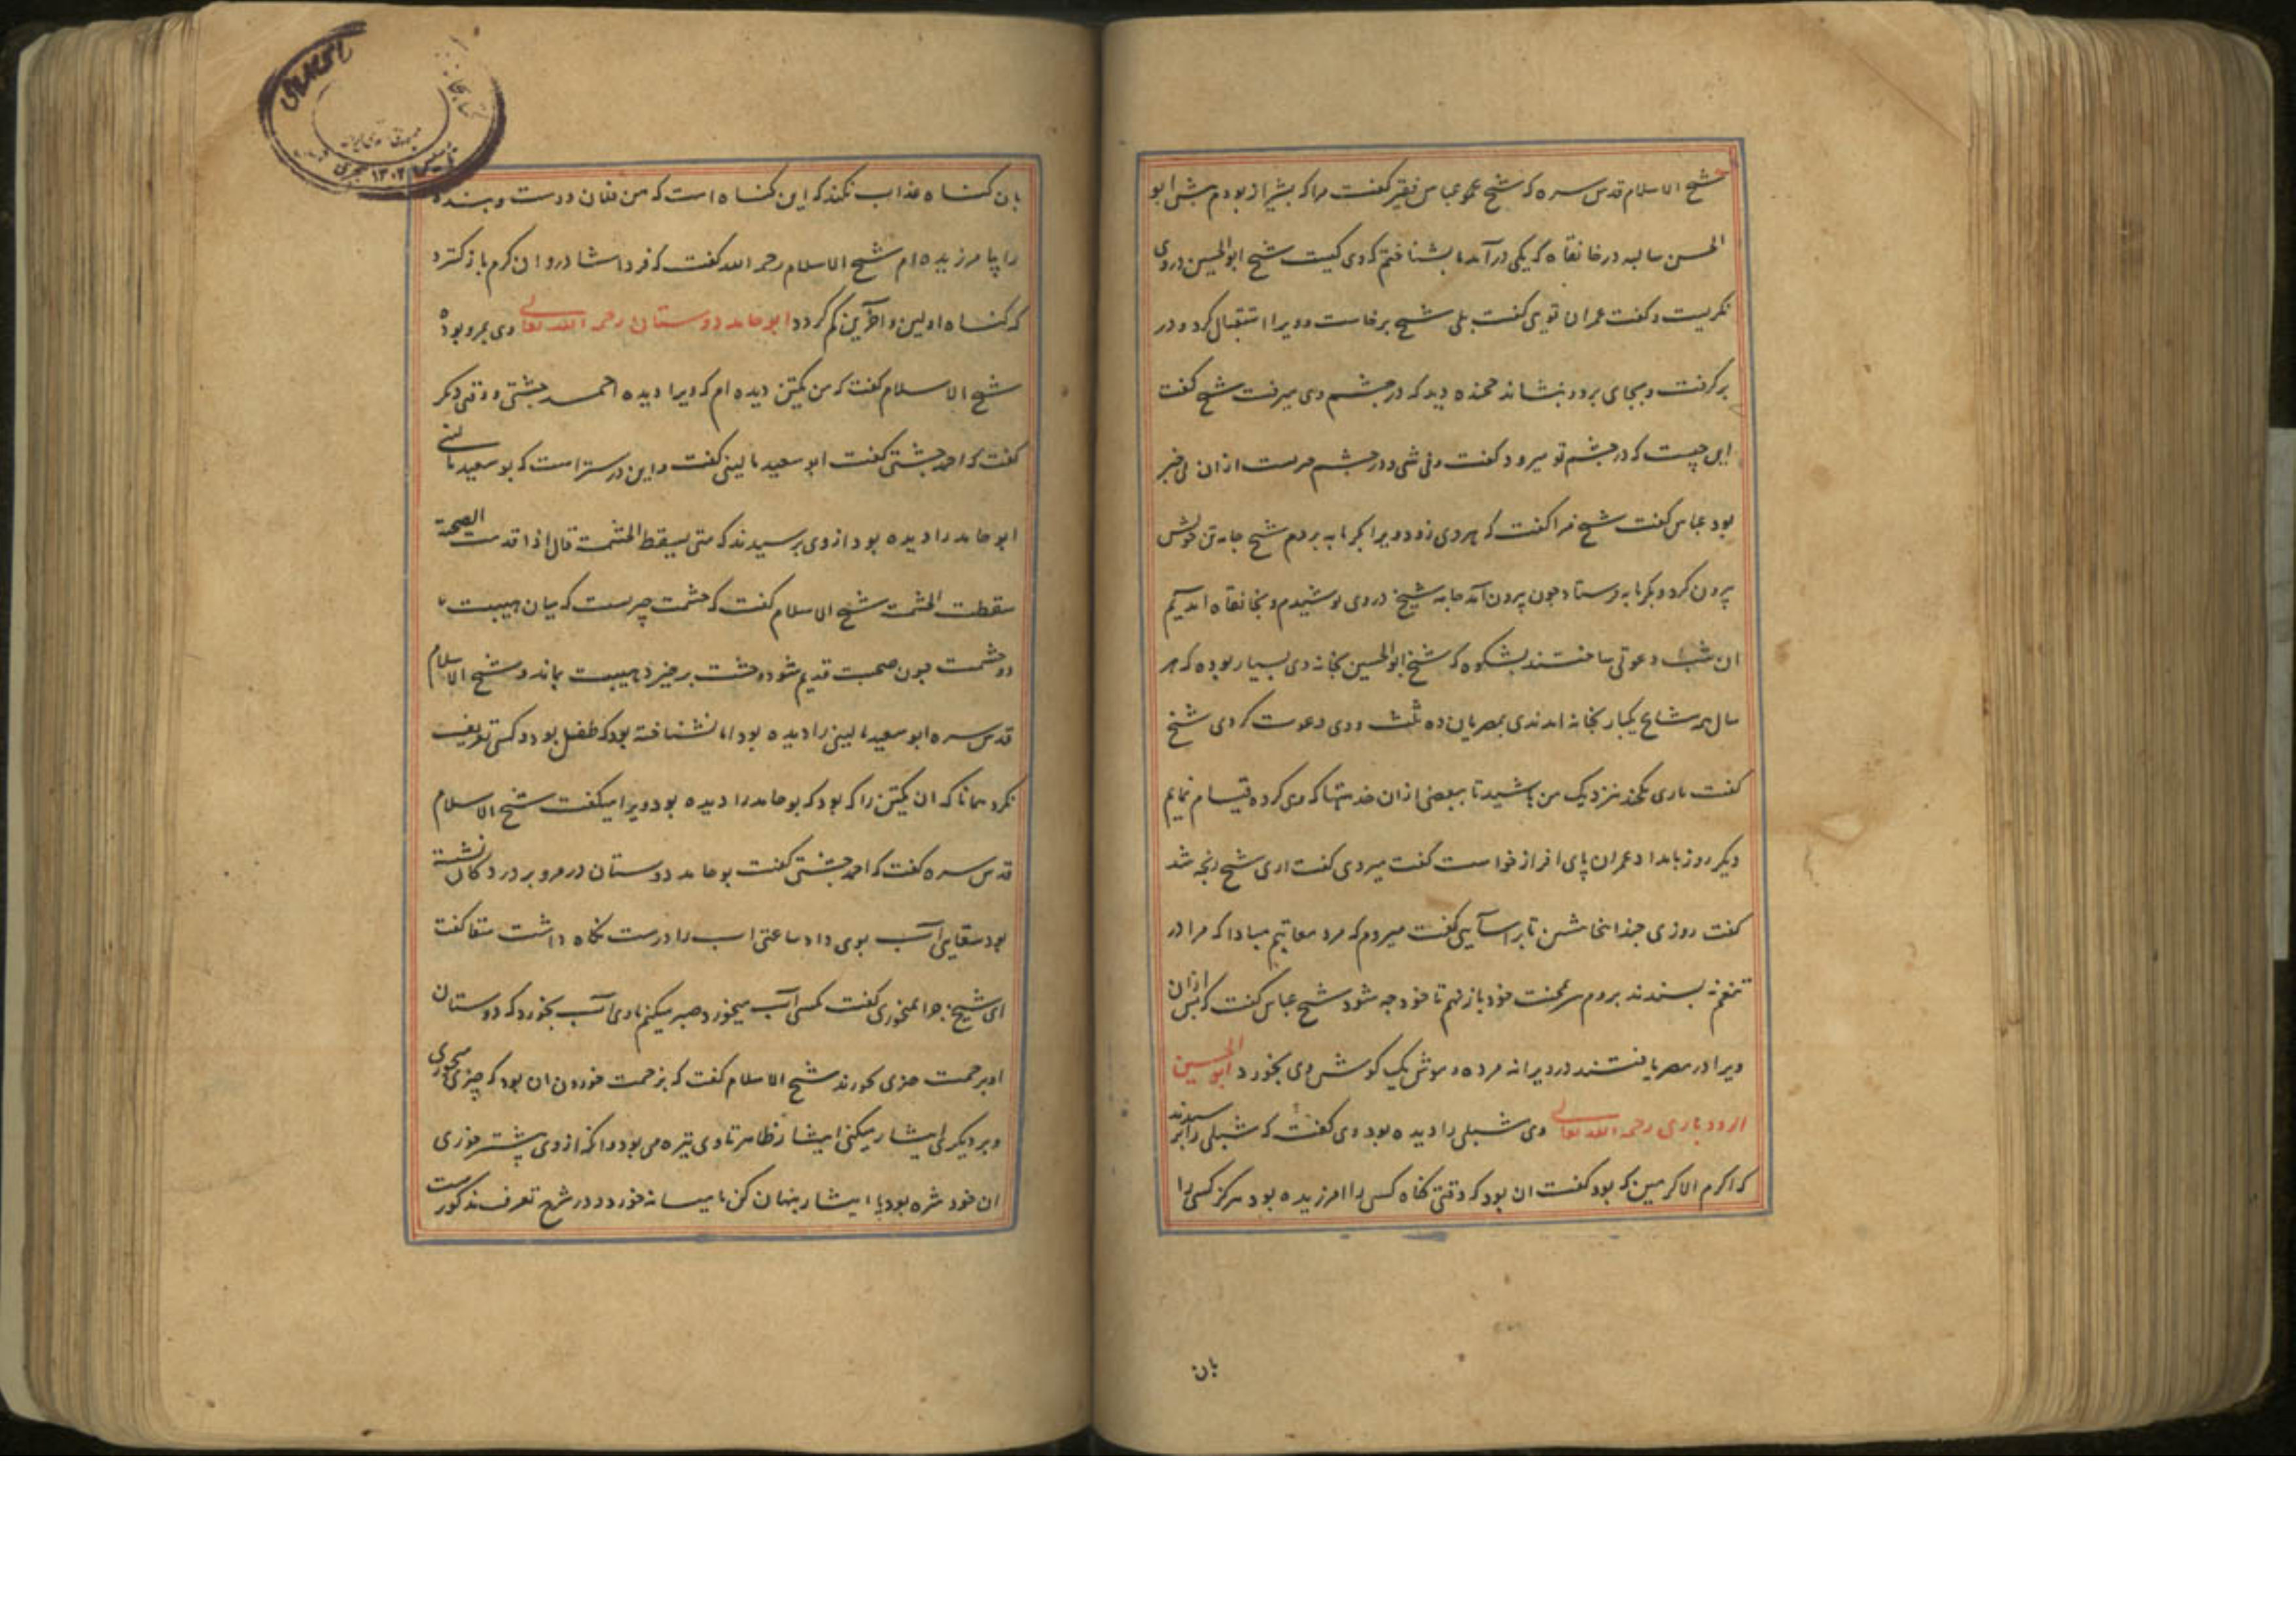 شیخ الاسلام قدس سره که شیخ عمو عباس فقیر گفت مرا که بشیراز بودم پیش ابو
الحسن سالبه در خانقاه که یکی درآمد ما بشناختم که وی کیست شیخ ابوالحسین در وی
نگریست و گفت عمران توی گفت بلی شیخ برخاست و ویرا استقبال کرد و در
بر گرفت و بجای برد و بنشاند جمنده دید که در چشم وی میرفت شیخ گفت
این چیست که در چشم تو میرود گفت وفی شی و در چشم من است از ان بی خبر
بود عباس گفت شیخ فرا گفت که هردی زود ویرا بگرمابه بردم شیخ جامه تن خویش
بیرون کرد و بگرمابه فرستاد چون بیرون آمد جامه شیخ در وی پوشیدم و بخانقاه آمدیم
ان شب دعوتی ساختند بشکوه که شیخ ابوالحسین بخانه وی بسیار بوده که هر
سال همه مشایخ یکبار بخانه امدندی بمصر یان ده ثلث و وی دعوت کردی شیخ
گفت باری یکچند نزدیک من باشید تا ببعضی از ان خدمتها که وی کرده قیام نمایم
دیگر روز بامداد عمران پای افراز خواست گفت میروی گفت اری شیخ رنجه شد
گفت روزی چند اینجا باش تا براسایی گفت میروم که مرد معاتبم مبادا که مرا در
تنعم بپسندند بروم سر محنت خود باز نهم تا خود چه شود شیخ عباس گفت که پس ازان
ویرا در مصر یافتند در ویرانه مرده و موش یک گوش وی بخورد ابو الحسین
ارودباری رحمه الله تعالی وی شبلی را دیده بود وی گفت که شبلی را پرسیدند
که اکرم الاکرمین که بود گفت ان بود که وقتی گناه کسی را امرزیده بود هرگز کسی را
بان
بان گناه عذاب نکند که این گناه است که من فلان دوست و بنده
را بیامرزیده ام شیخ الاسلام رحمه الله گفت که فردا شادروان کرم باز گسترد
که گناه اولین و آخرین گم گردد ابو حامد دوستان رحمه الله تعالی وی بمرو بوده
شیخ الاسلام گفت که من یکتن دیده ام که ویرا دیده احمد چشتی و وقتی دیگر
گفت که احمد چشتی گفت ابو سعید مالینی گفت و این درستر است که بو سعید مالینی
ابو حامد را دیده بود از وی پرسیدند که متی یسقط الحشمت قال اذا قدمت الصحبة
سقطت الحشمت شیخ الاسلام گفت که حشمت چیرست که میان هیبت ما
و حشمت چون صحبت قدیم شود وحشت برخیزد هیبت بماند و شیخ الاسلام
قدس سره ابو سعید مالینی را دیده بود اما نشناخته بود که طفل بود و کسی تعریف
نکرد همانا که ان یکتن را که بود که بو حامد را دیده بود ویرا میگفت شیخ الاسلام
قدس سره گفت که احمد چشتی گفت بو حامد دوستان در مرو بر در دکان نشسته
بود سقایی آب بوی داد ساعتی اب را در دست نگاه داشت سقا گفت
ای شیخ چرا نمیخوری گفت مگسی آب میخورد صبر میکنم تا وی آب بخورد که دوستان
او بزحمت چیزی نخورند شیخ الاسلام گفت که بزحمت خوردن ان بود که چیزی میخوری
و بر دیگری ایثار میکنی ایثار ظاهر تا وی تیره می بود و انکه از وی پیشتر خوری
ان خود شره بود یا ایثار پنهان کن یا میسانه خور و در شرح تعرف مذکور است